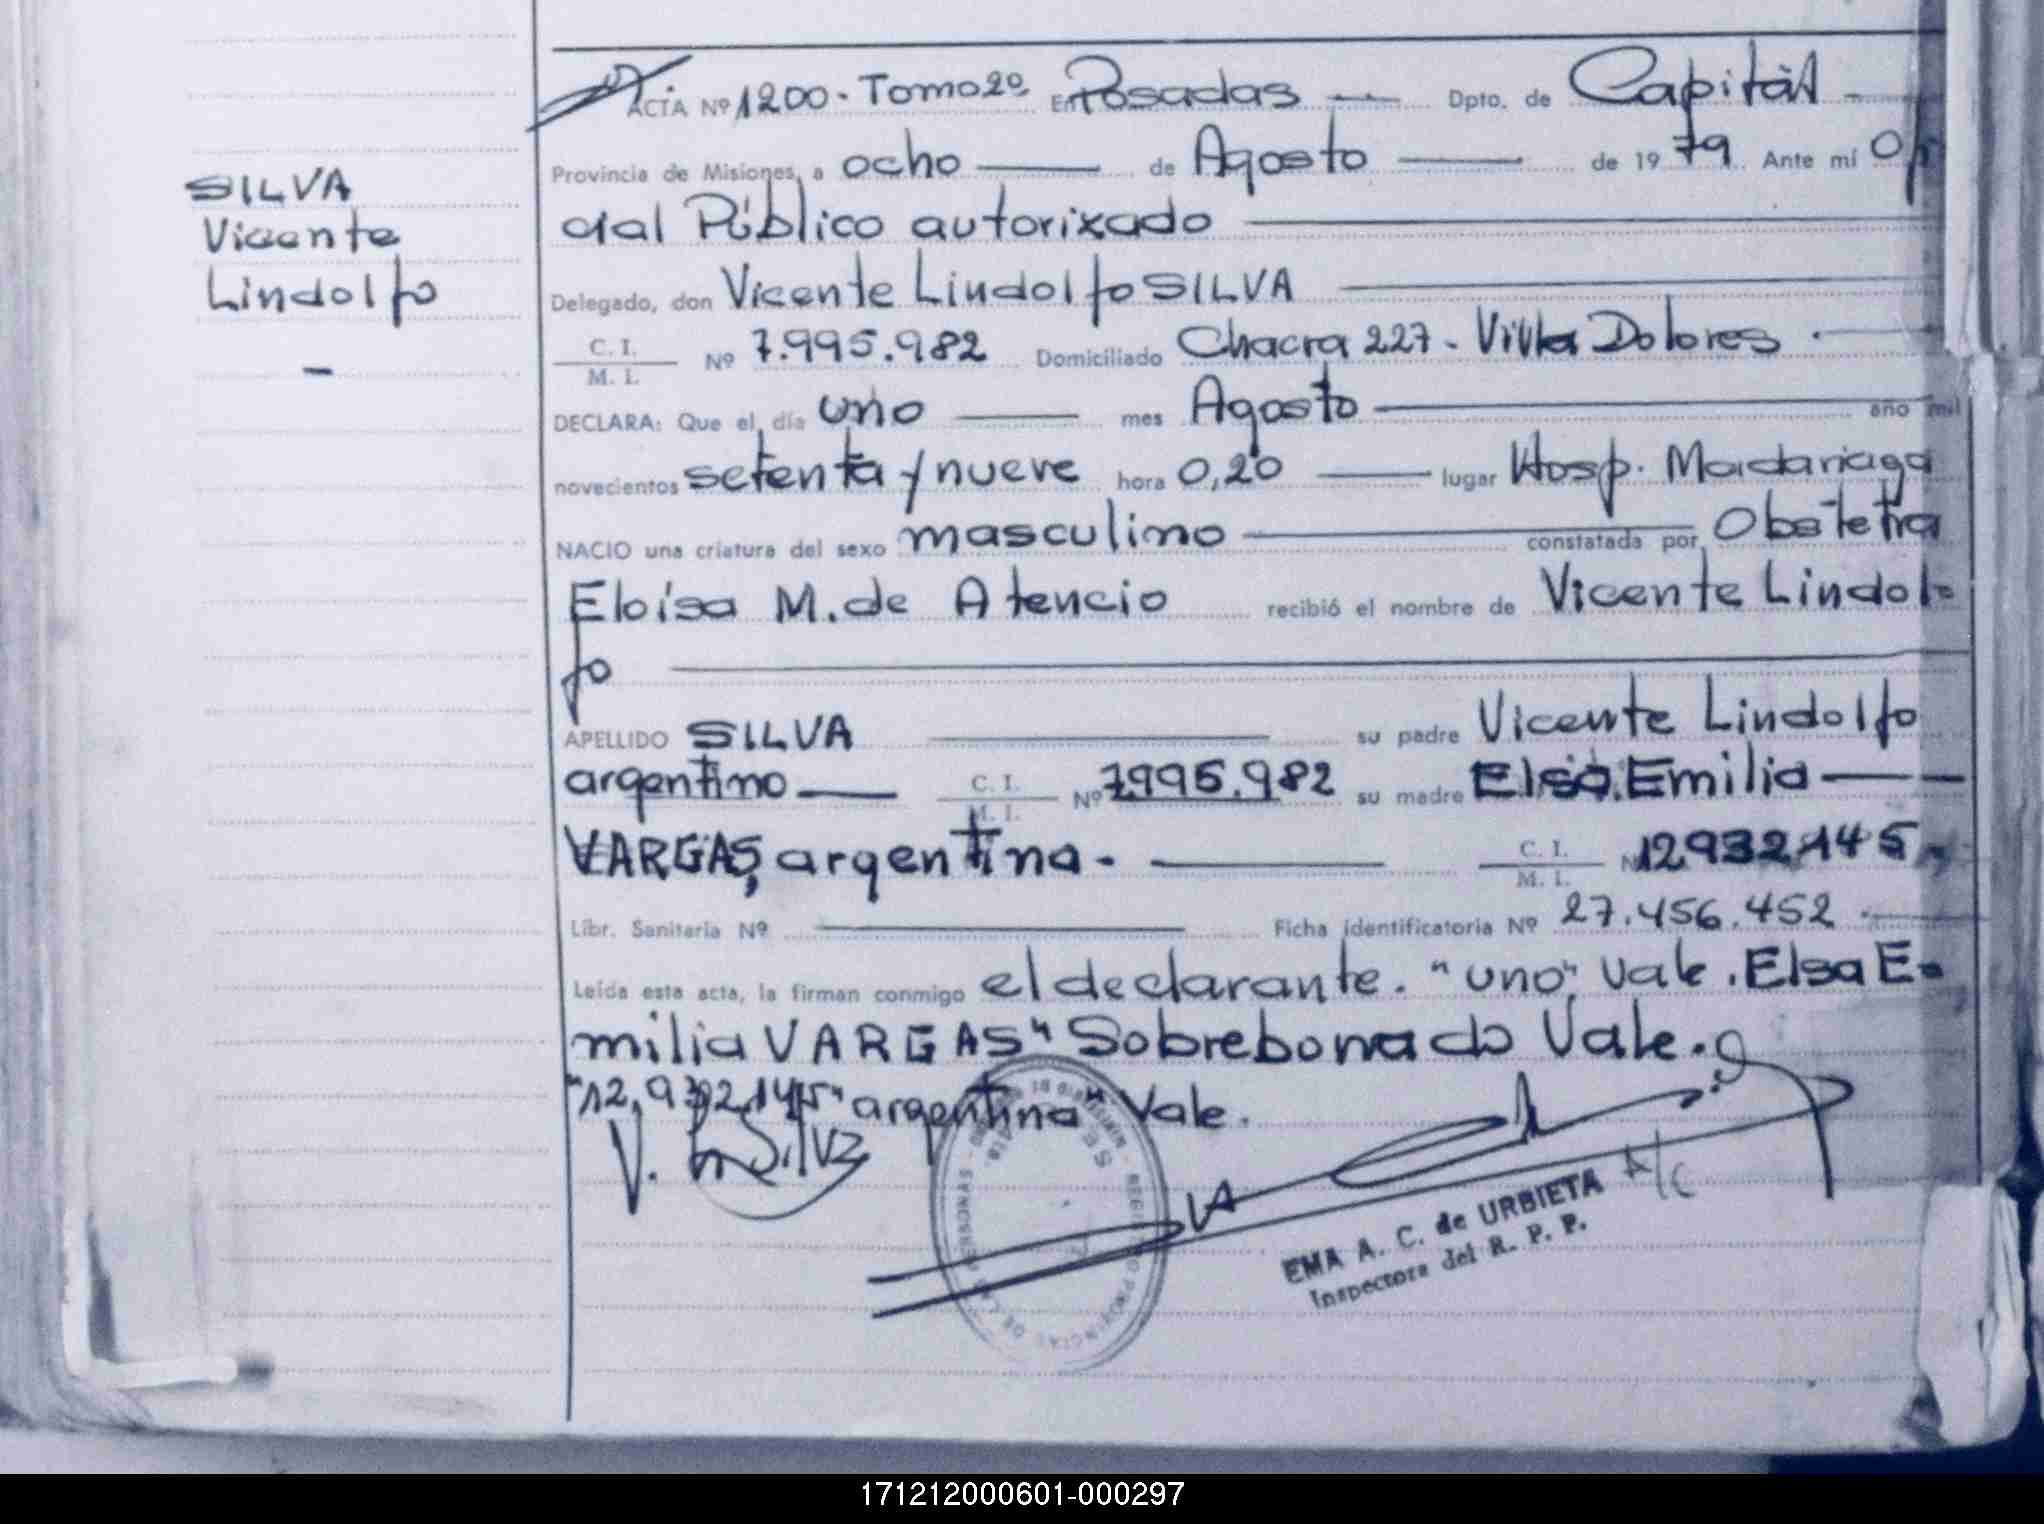 SILVA
Vicente
Lindolfo
ACTA Nº 1200 - Tomo 2º En Posadas Dpto. de Capital
Provincia de Misiones, a ocho de Agosto de 1979 Ante mí Ofi
cial Público autorizado
Delegado, don Vicente Lindolfo SILVA
C. I.
M. I.
Nº 7.995.982 Domiciliado Chacra 227 - Villa Dolores.
DECLARA: Que el día uno mes Agosto año mil
novecientos setenta y nueve hora 0,20 lugar Hosp. Madariaga
NACIO una criatura del sexo masculino constatada por Obstetra
Eloísa M. de Atencio recibió el nombre de Vicente Lindol-
fo
APELLIDO SILVA su padre Vicente Lindolfo
argentino C. I. M. I. Nº 7.995.982 su madre Elsa Emilia
VARGAS, argentina. C. I. M. I. Nº 12932145
Libr. Sanitaria Nº Ficha identificatoria Nº 27.456.452
Leída esta acta, la firman conmigo el declarante. "uno" Vale. Elsa E-
milia VARGAS" Sobreborrado Vale.
"12.932.145" argentina" Vale.
V. L. Silva
EMA A. C. de URBIETA A/C
Inspectora del R. P. P.
171212000601-000297